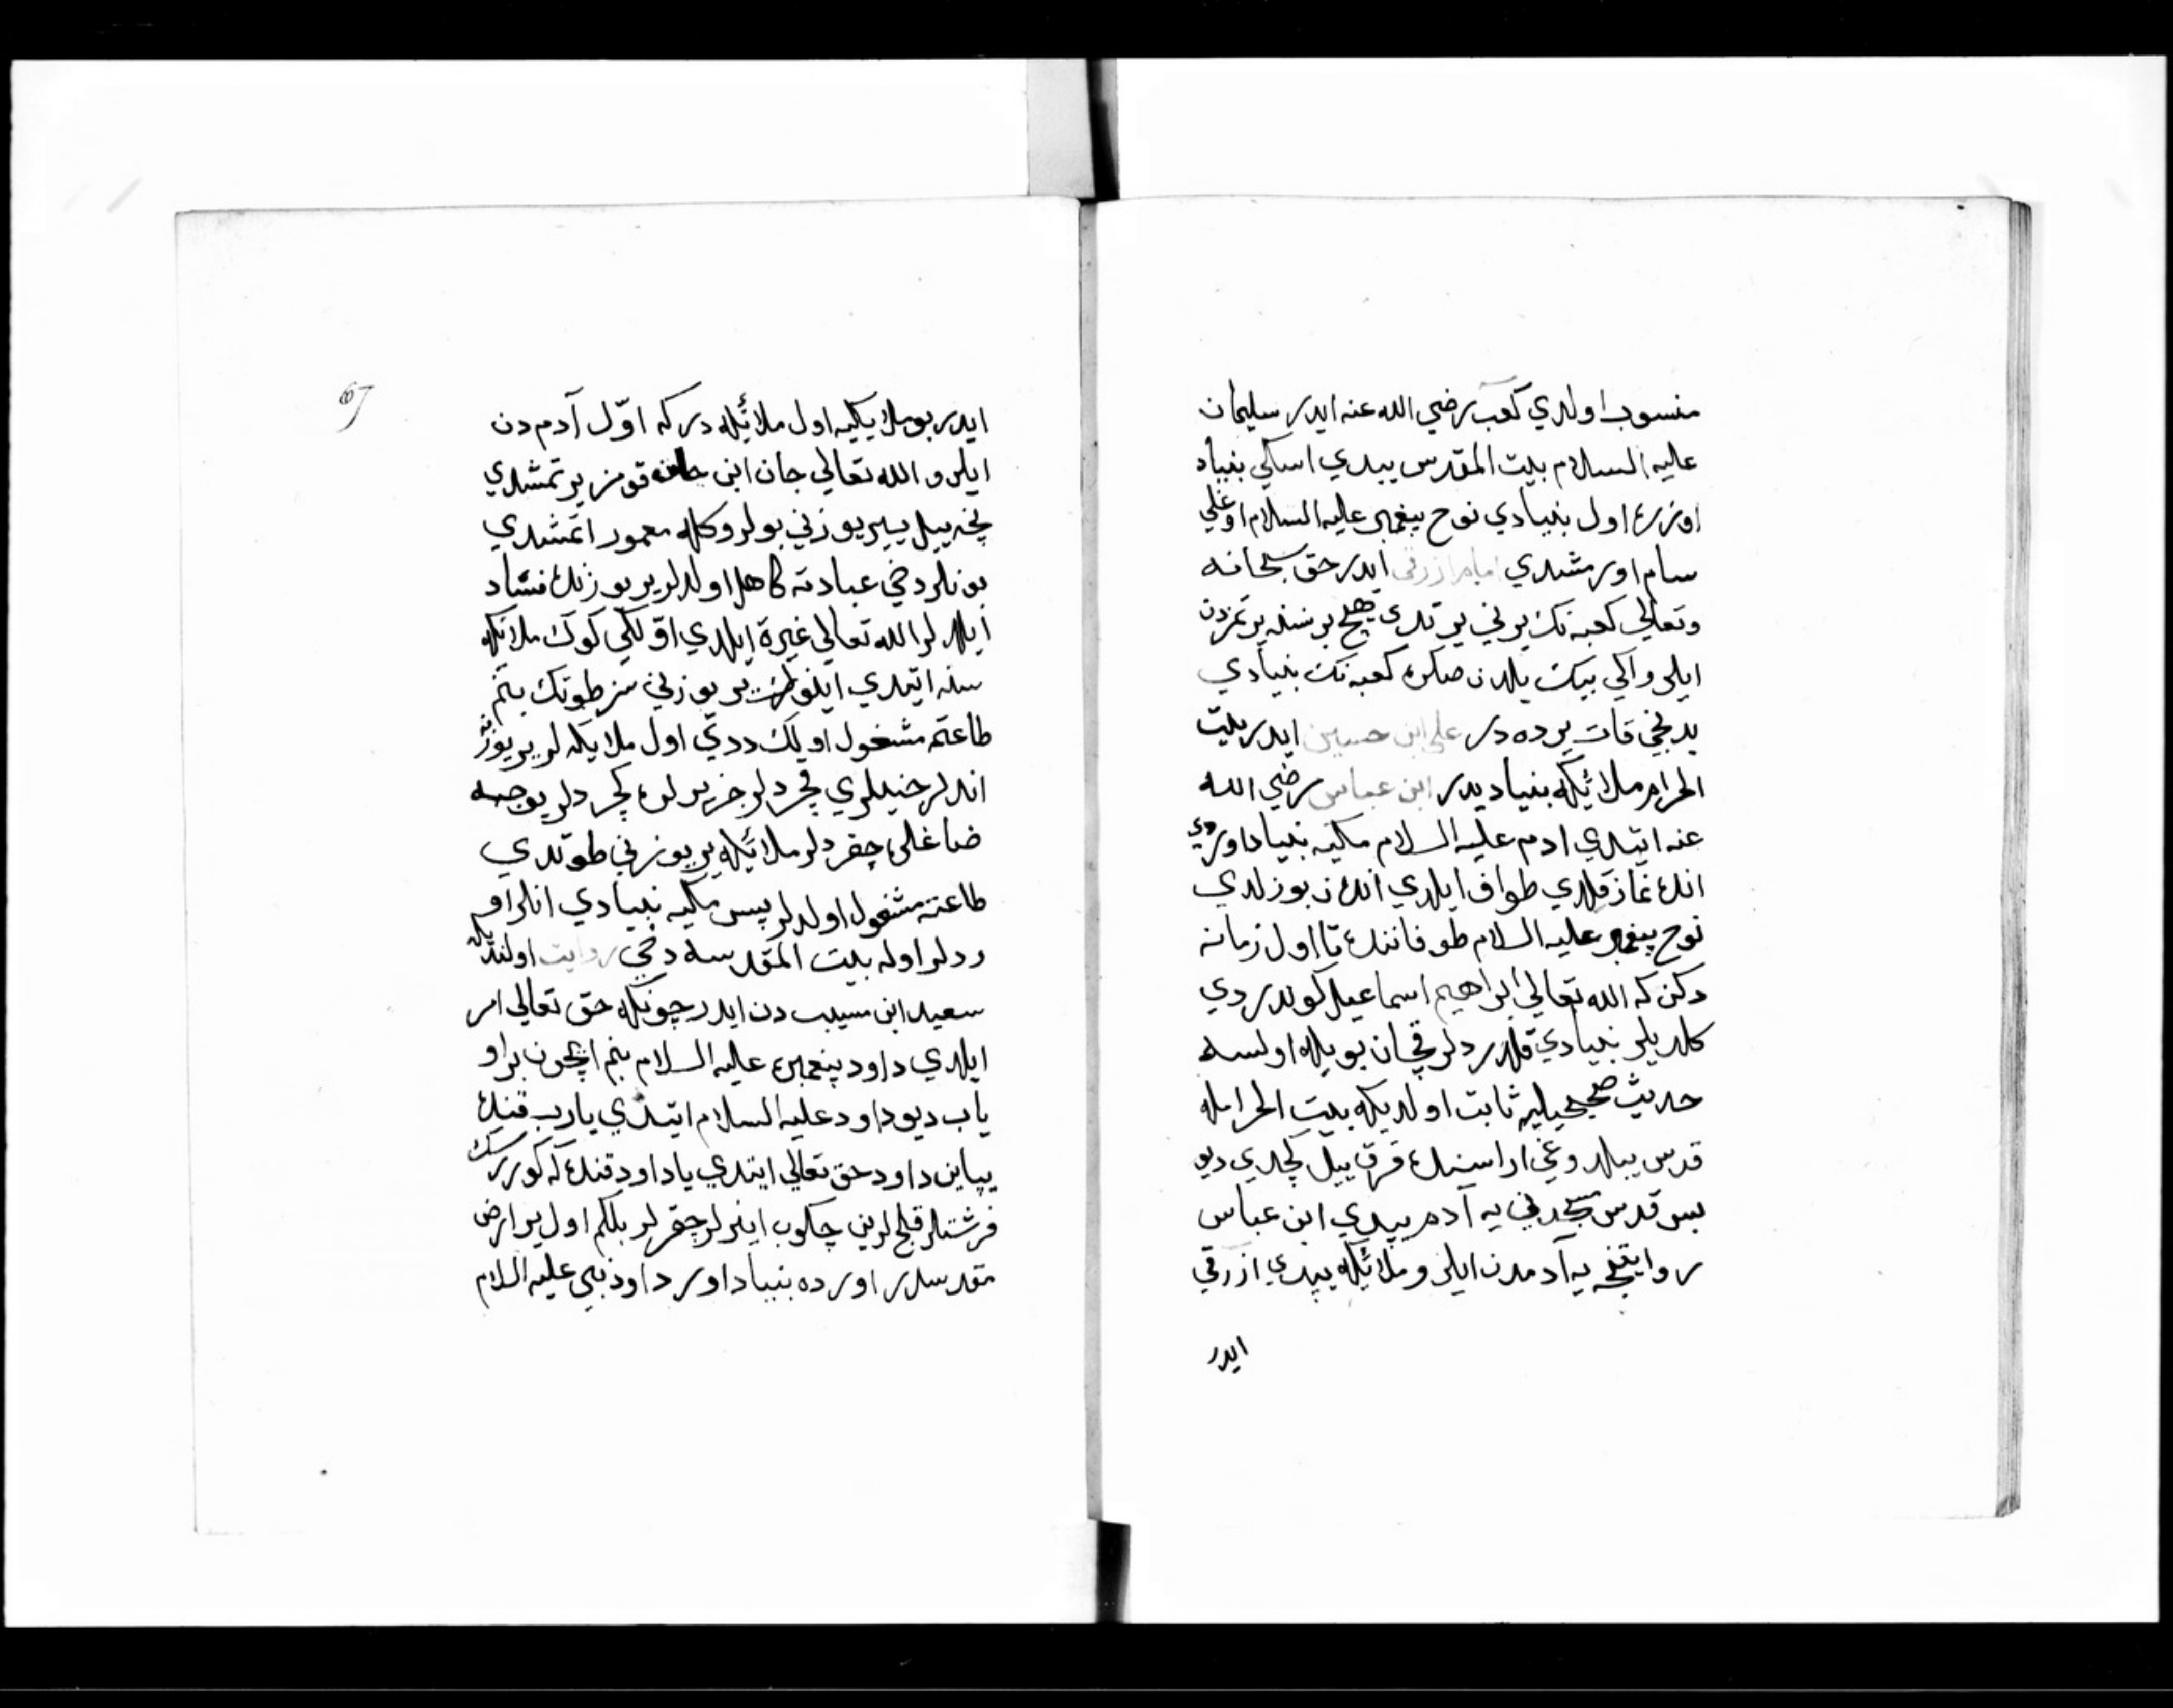 منسوب اولدي كعب رضي الله عنه ايدر سليمان
عليه السلام بيت المقدس يپدي اسكي بنياد
اوزره اول بنيادي نوح پيغمبر عليه السلام اوغلي
سام اورمشدي امام ازرقي ايدر حق سبحانه
وتعالي كعبه نك يرني يرتدي هيچ بر نسنه يرتمزدن
ايلرو اكي بيك يلدن صكره كعبه نك بنيادي
يدنجي قات يرده در علي ابن حسين ايدر بيت
الحرام ملائيكه بنياديدر ابن عباس رضي الله
عنه ايتدي ادم عليه السلام مكيه بنياد اوردي
انده نماز قلدي طواف ايلدي اندن بوزلدي
نوح پيغمبر عليه السلام طوفاننده تا اول زمانه
دكن كه الله تعالي ابراهيم اسماعيل كوندردي
كلديلر بنيادي قلدردلر قچان بويله اولسه
حديث صحيحيله ثابت اولديكه بيت الحرامله
قدس يپلدوغي اراسنده قرق ييل كچدي ديو
بس قدس مسجدني يه آدم يپدي ابن عباس
روايتنجه يه آدمدن ايلرو ملائيكه يپدي ازرقي
ايدر
67
ايدر بو ملايكيه اول ملائيكه در كه اوّل آدم دن
ايلرو الله تعالي جان ابن جان قومن يرتمشدي
نچه ييل يير يوزني بولر وكله معمور اتمشدي
بونلر دخي عبادته كاهل اولدلر ير يوزنده فساد
ايلدلر الله تعالي غيرة ايلدي اوّلكي كوك ملائكه
سنه اتيدي اينوك ير يوزني سز طوتك بنم
طاعتمه مشغول اولك ددي اول ملايكه لر ير يوزنه
اندلر جنيلري قچردلر جزيرلره كچردلر يوجه
ضاغلره چقردلر ملائيكه ير يوزني طوتدي
طاعته مشغول اولدلر پس مكيه بنيادي انلر او
ردلر اوله بيت المقدسه دخي روايت اولنديكه
سعيد ابن مسيب دن ايدر چونكه حق تعالي امر
ايلدي داود پيغمبره عليه السلام بنم اچون بر او
ياب ديو داود عليه السلام ايتدي يارب قنده
يپاين داود حق تعالي ايتدي يا داود قنده كه كوررسك
فرشتلر قلچلرين چكوب اينرلر چقرلر بلكم اول ير ارض
مقدسدر اورده بنياد اور داود نبي عليه السلام